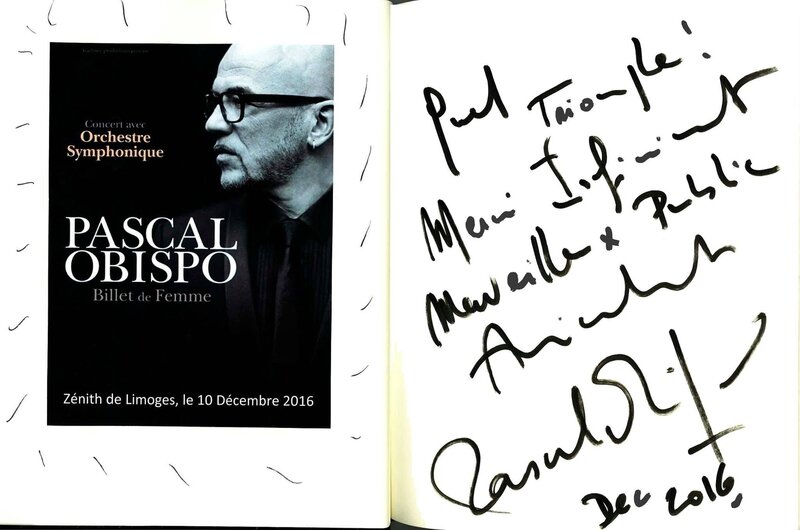 Concert avec
Orchestre
Symphonique
PASCAL
OBISPO
Billet de Femme
Zénith de Limoges, le 10 Décembre 2016
Quel Triomphe!
Merci Infiniment
Merveilleux Public
Amicalement
Pascal Obispo
Dec 2016.